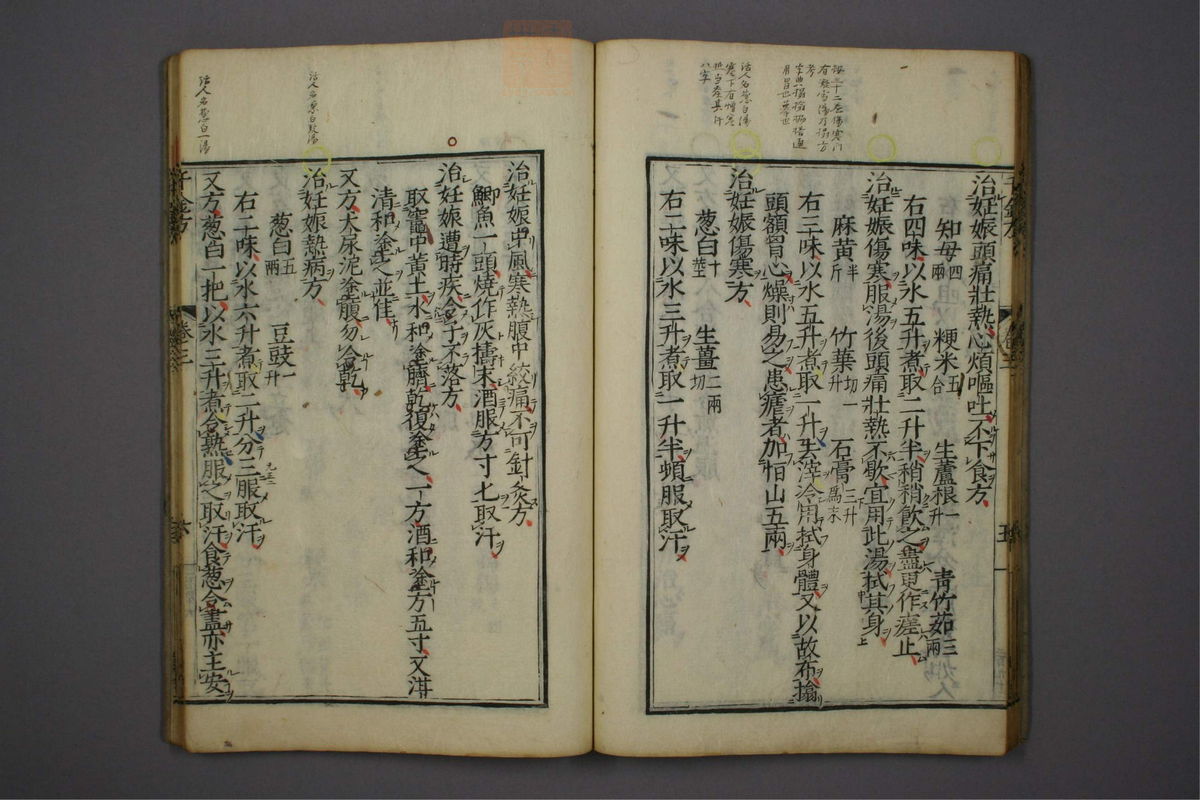 治妊娠頭痛壯熱心煩嘔吐不下食方
知母四兩 粳米五合 生蘆根一升 青竹茹三兩
右四味以水五升煮取二升半稍稍飲之盡更作瘥止
治妊娠傷寒服湯後頭痛壯熱不歇宜用此湯拭其身
麻黃半斤 竹葉切一升 石膏末三升
右三味以水五升煮取一升去滓冷用拭身體又以故布搨
頭額胷心燥則易之患瘧者加恒山五兩
治妊娠傷寒方
葱白十莖 生薑二兩切
右二味以水三升煮取一升半頓服取汗
治妊娠中風寒熱腹中絞痛不可針灸方
鯽魚一頭燒作灰擣末酒服方寸匕取汗
治妊娠遭時疾令子不落方
取竈中黃土水和塗臍乾復塗之一方酒和塗方五寸又泔
清和塗之並佳
又方犬尿泥塗腹勿令乾
治妊娠熱病方
葱白五兩 豆豉一升
右二味以水六升煮取二升分三服取汗
又方葱白一把以水三升煮令熟服之取汗食葱令盡亦主安
千金方 卷三 六